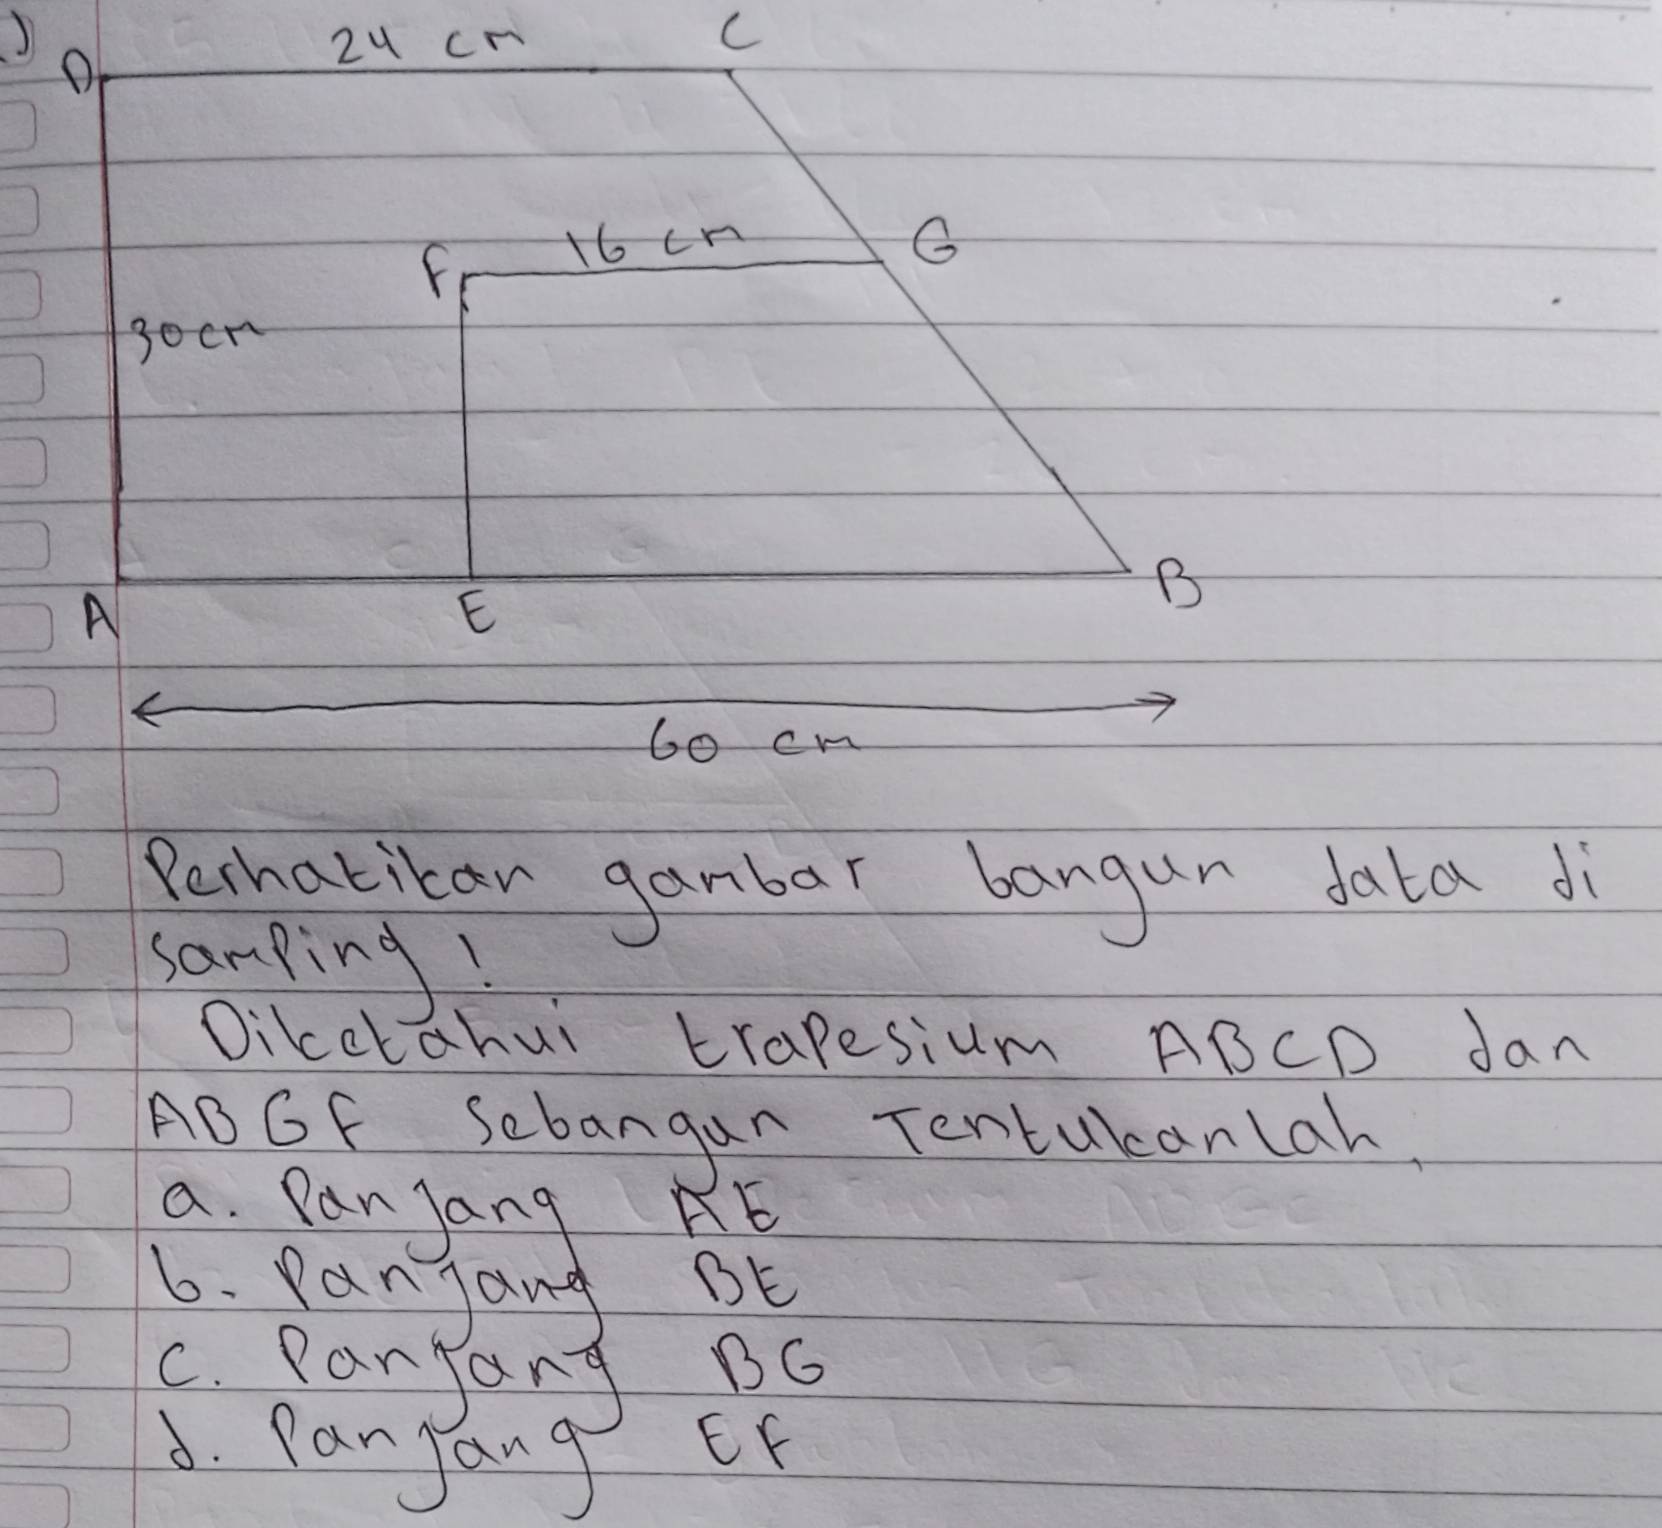 )
D 24 cm C
F 16 cm G
30 cm
A E B
60 cm
Perhatikan gambar bangun data di
samping!
Diketahui trapesium ABCD dan
ABGF Sebangun Tentukanlah,
a. Panjang AE
b. Panjang BE
c. Panjang BG
d. Panjang EF